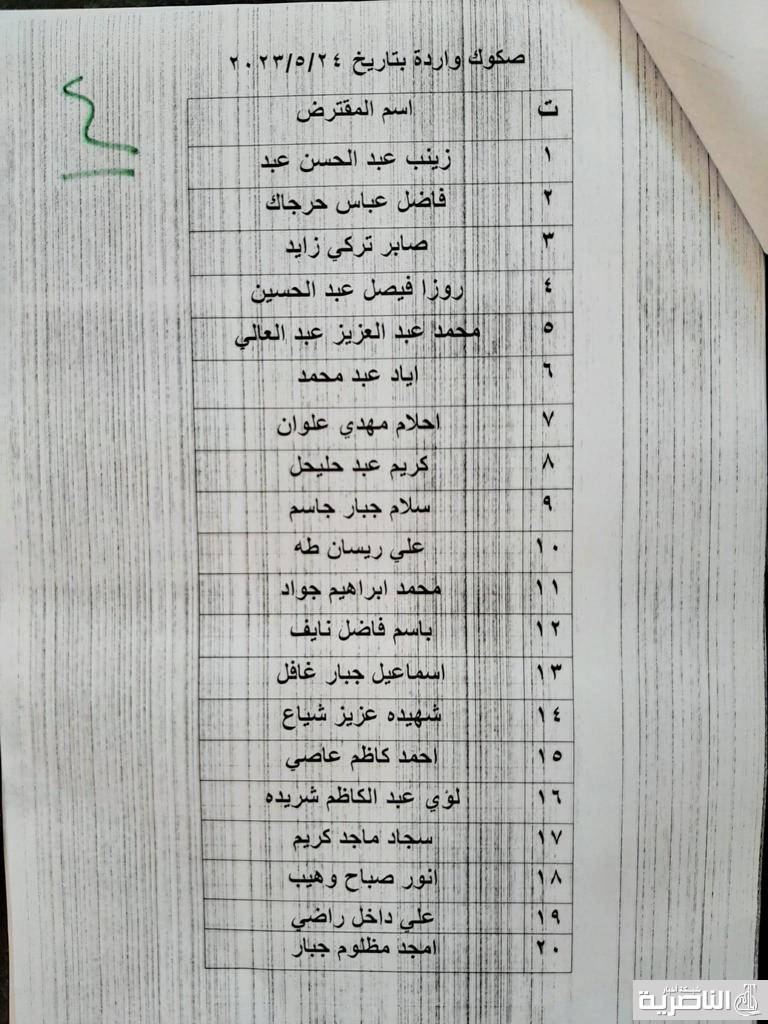 صكوك واردة بتاريخ ٢٠٢٣/٥/٢٤
ت اسم المقترض
١ زينب عبد الحسن عبد
٢ فاضل عباس حرجاك
٣ صابر تركي زايد
٤ روزا فيصل عبد الحسين
٥ محمد عبد العزيز عبد العالي
٦ اياد عبد محمد
٧ احلام مهدي علوان
٨ كريم عبد حليحل
٩ سلام جبار جاسم
١٠ علي ريسان طه
١١ محمد ابراهيم جواد
١٢ باسم فاضل نايف
١٣ اسماعيل جبار غافل
١٤ شهيده عزيز شياع
١٥ احمد كاظم عاصي
١٦ لؤي عبد الكاظم شريده
١٧ سجاد ماجد كريم
١٨ انور صباح وهيب
١٩ علي داخل راضي
٢٠ امجد مظلوم جبار
٤
شبكة أخبار
الناصرية